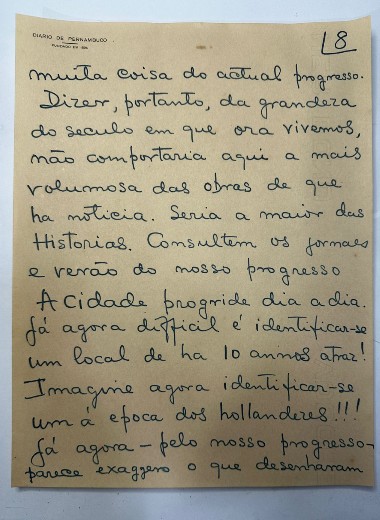 DIARIO DE PERNAMBUCO
8
muita coisa do actual progresso.
Dizer, portanto, da grandeza
do seculo em que ora vivemos,
não comportaria aqui a mais
volumosa das obras de que
ha noticia. Seria a maior das
Historias. Consultem os jornaes
e verão do nosso progresso
A cidade progride dia a dia.
Já agora difficil é identificar-se
um local de ha 10 annos atraz!
Imagine agora identificar-se
um á epoca dos hollandezes!!!
Já agora – pelo nosso progresso –
parece exaggero o que desenharam